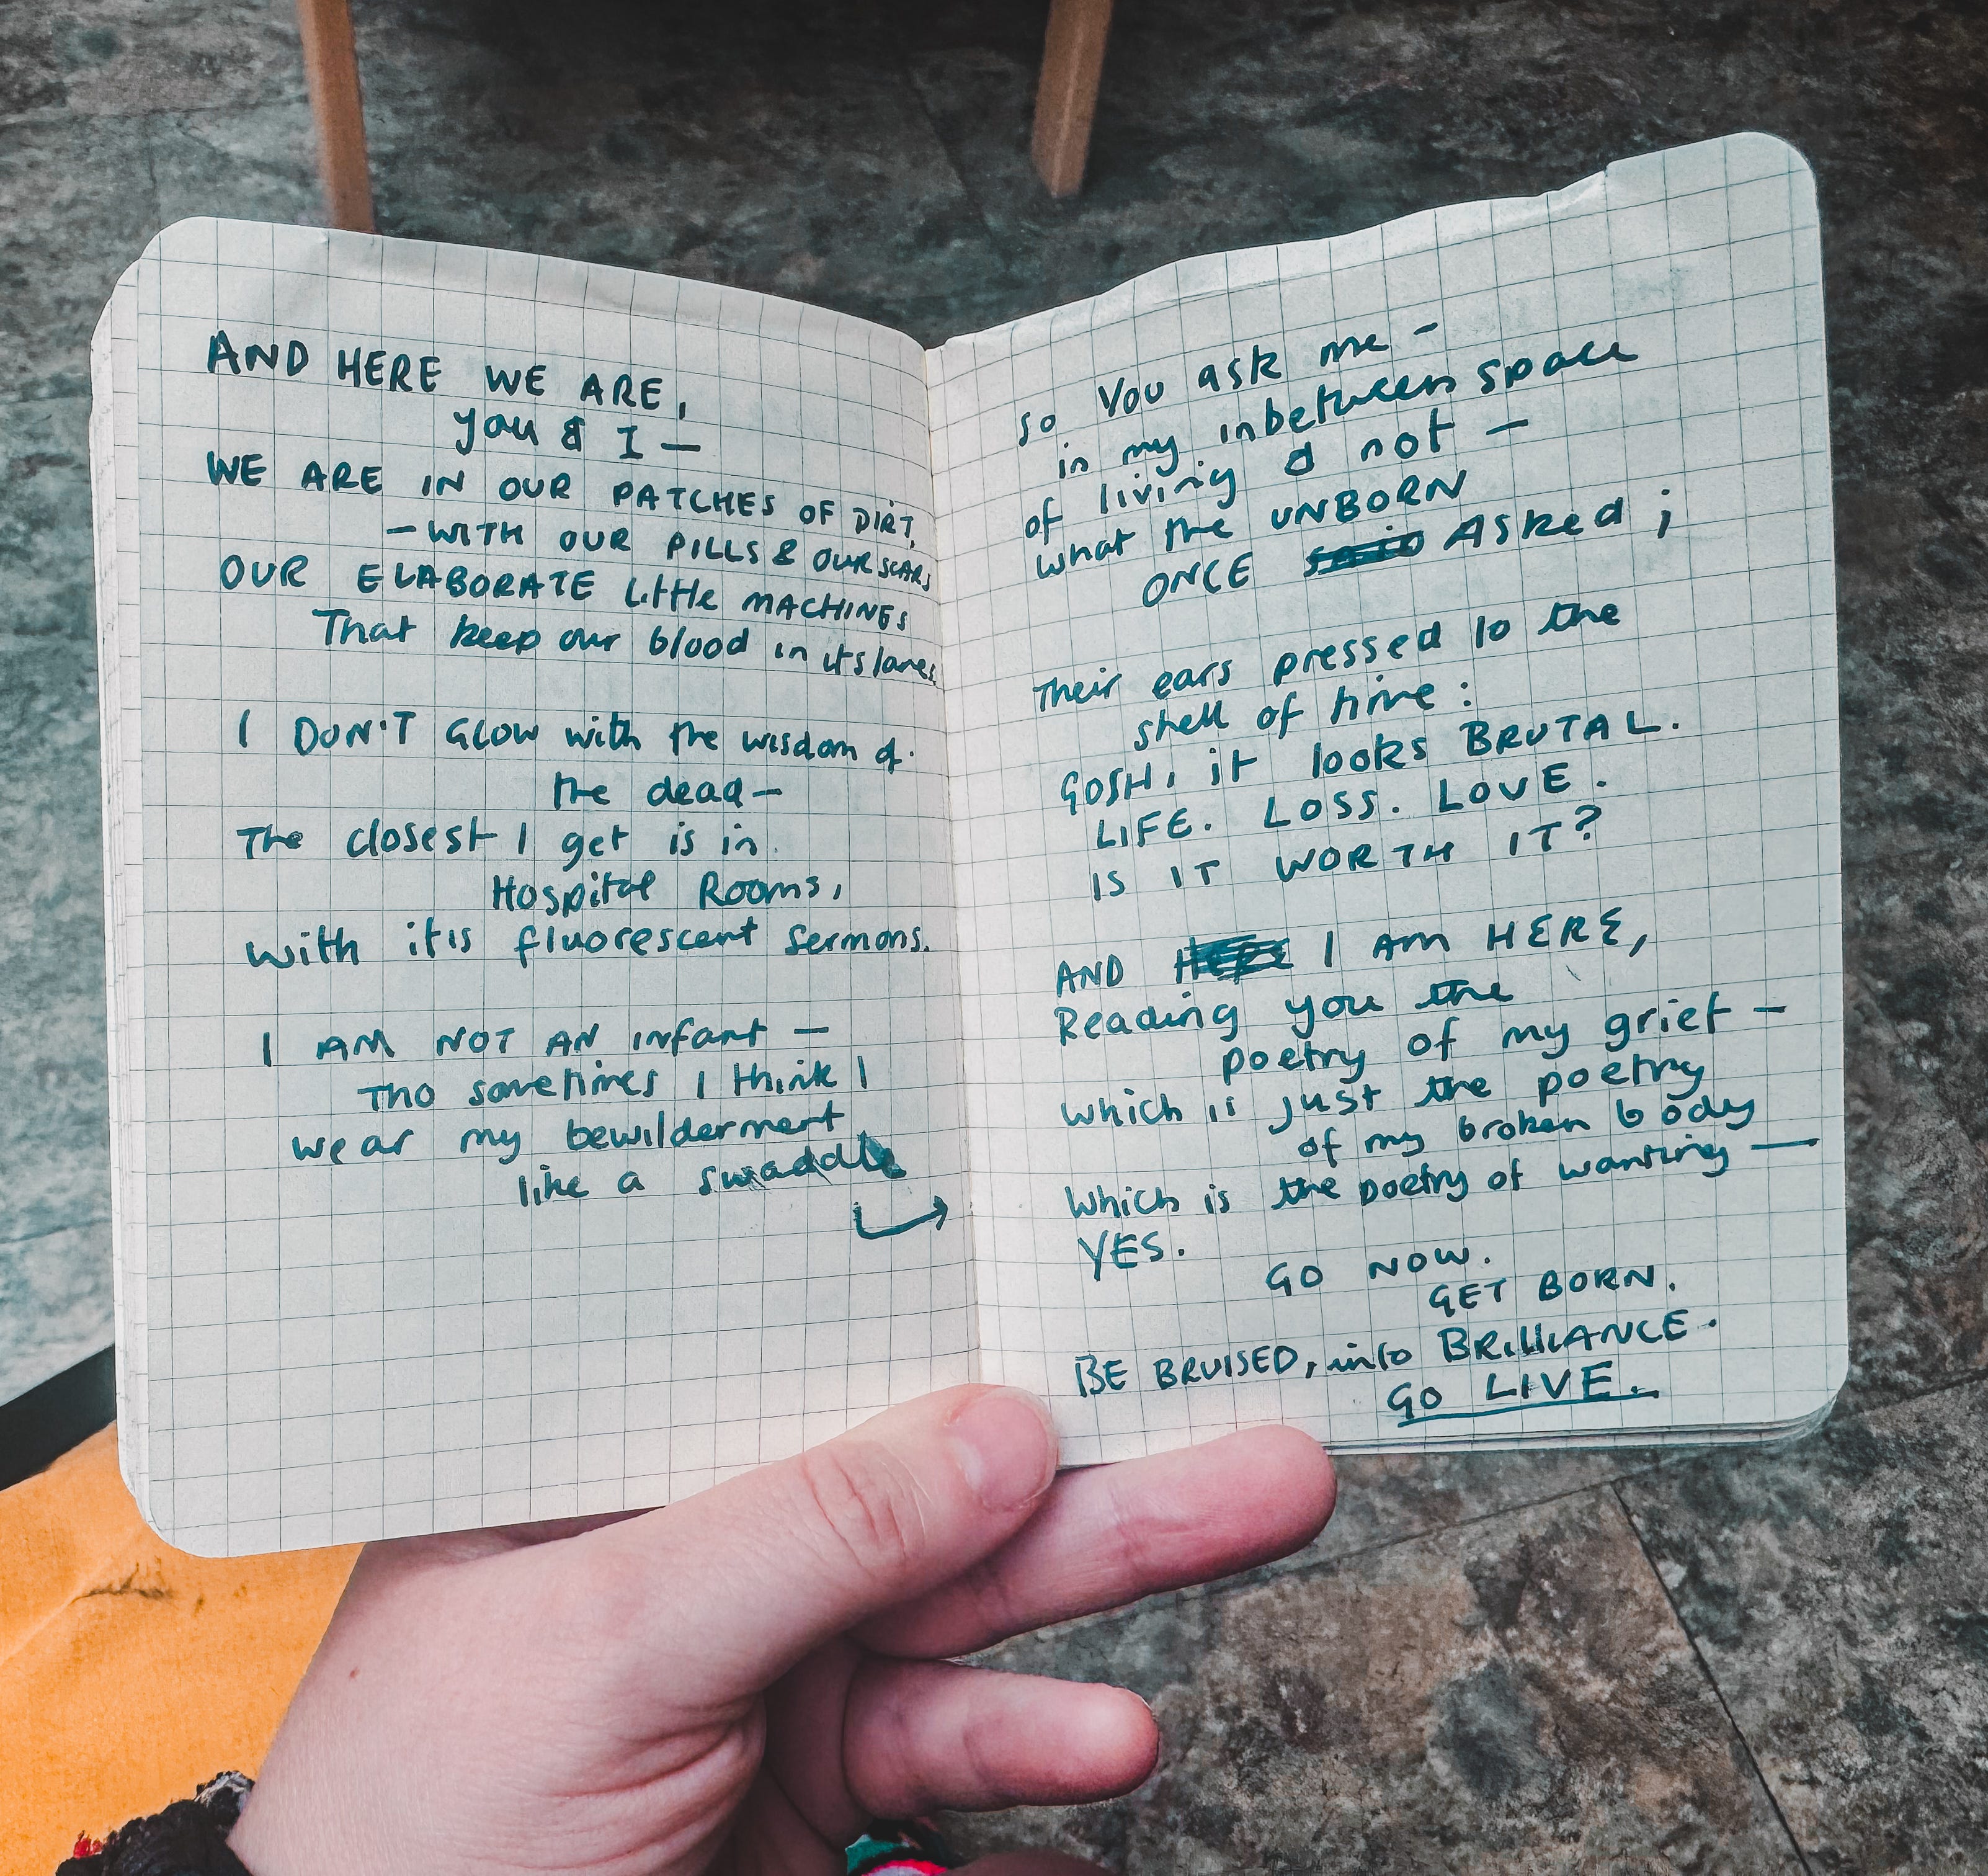 AND HERE WE ARE,
you & I —
WE ARE IN OUR PATCHES OF DIRT,
— WITH OUR PILLS & OUR SCARS
OUR ELABORATE little MACHINES
That keep our blood in its lanes.
I DON'T GLOW with the wisdom of
the dead —
The closest I get is in
Hospital Rooms,
with it's fluorescent sermons.
I AM NOT AN infant —
Tho sometimes I think I
wear my bewilderment
like a swaddle
so You ask me -
in my inbetween space
of living & not —
what the UNBORN
ONCE said Asked ;
Their ears pressed to the
shell of time :
GOSH, it looks BRUTAL.
LIFE. LOSS. LOVE.
IS IT WORTH IT?
AND Here I AM HERE,
Reading you the
poetry of my grief —
which is just the poetry
of my broken body
Which is the poetry of wanting —
YES.
GO NOW.
GET BORN.
BE BRUISED, into BRILLIANCE.
GO LIVE.